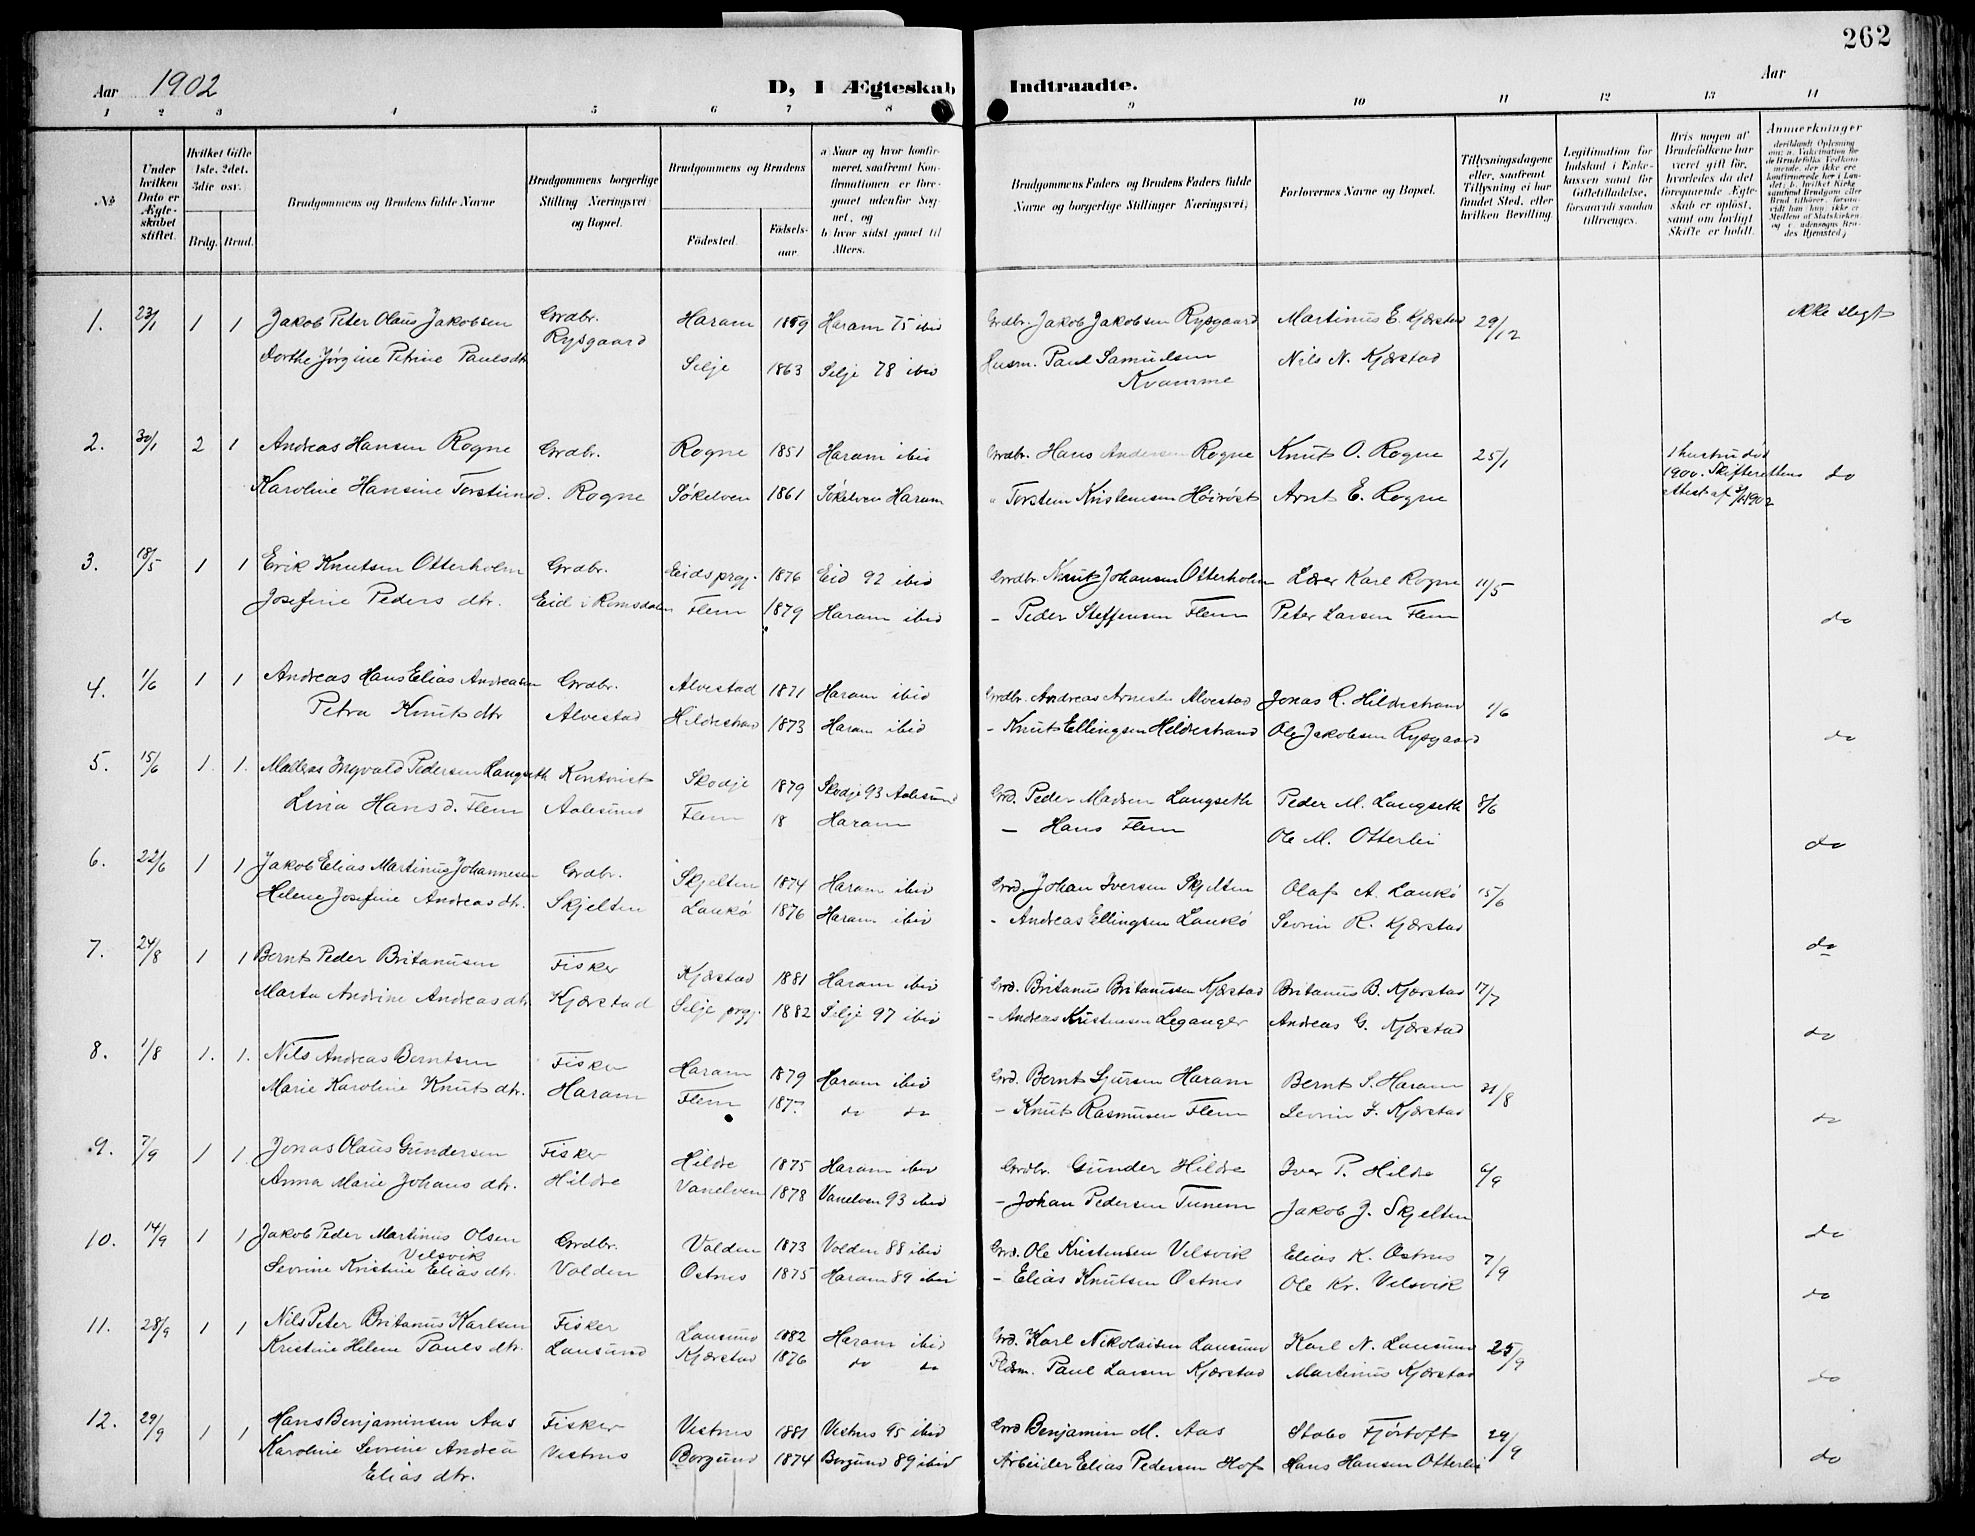 262
Aar 1902
D, I Ægteskab Indtraadte.
Aar
1 2 3 4 5 6 7 8 9 10 11 12 13 14
№
Under hvilken Dato er Ægteskabet stiftet.
Hvilket Gifte 1ste, 2det, 3die osv.
Brdg. Brud.
Brudgommens og Brudens fulde Navne
Brudgommens borgerlige Stilling Næringsvei og Bopæl.
Brudgommens og Brudens
Fødested. Fødselsaar
a) Naar og hvor konfirmeret, saafremt Konfirmationen er foregaaet udenfor Sognet, og
b) hvor sidst gaaet til Alters.
Brudgommens Faders og Brudens Faders fulde Navne og borgerlige Stillinger Næringsvei;
Forlovernes Navne og Bopæl.
Tillysningsdagene eller, saafremt Tillysning ei har fundet Sted, efter hvilken Bevilling.
Legitimation for Indskud i Enkekassen samt for Giftetilladelse, forsaavidt saadan tiltrænges.
Hvis nogen af Brudefolkene har været gift før, hvorledes da det foregaaende Ægteskab er opløst, samt om lovligt Skifte er holdt.
Anmerkninger
1. 23/1 1 1 Jakob Peter Olaus Jakobsen Grdbr. Haram 1859 Haram 75 ibid Grdbr. Jakob Jakobsen Rysgaard Martinus E. Kjærstad 29/12 ikke slegt
Dorthe Jørgine Petrine Paulsdtr Rysgaard Selje 1863 Selje 78 ibid Husm. Paul Samuelsen Kvamme Nils N. Kjærstad
2. 30/1 2 1 Andreas Hansen Rogne Grdbr. Rogne 1851 Haram ibid Grdbr. Hans Andersen Rogne Knut O. Rogne 25/1 1 hustru død 1900. Skifterettens attest af 3/1 1902 do
Karoline Hansine Torsteinsd. Rogne Søkelven 1861 Søkelven Haram " Torsten Kristensen Hoirøst Arnt E. Rogne
3. 18/5 1 1 Erik Knutsen Otterholm Grdbr. Eidsprgj. 1876 Eid 92 ibid Grdbr. Knut Johansen Otterholm Lærer Karl Rogne 11/5
Josefine Peders dtr. Eid i Romsdalen Flem 1879 Haram ibid - Peder Steffensen Flem Peter Larsen Flem do
4. 1/6 1 1 Andreas Hans Elias Andreasen Grdbr. Alvestad 1871 Haram ibid Grdbr. Andreas Arnesen Alvestad Jonas R. Hildrestrand 1/6
Petra Knuts dtr Alvestad Hildrestrand 1873 Haram ibid - Knut Ellingsen Hildrestrand Ole Jakobsen Rysgaard do
5. 15/6 1. 1. Madias Ingvald Pedersen Langseth Kontorist Skodje 1879 Skodje 93 Aalesund Grd. Peder Madsen Langseth Peder M. Langseth 8/6
Lina Hans d. Flem Aalesund Flem 18 Haram - Hans Flem Ole M. Otterlei do
6. 22/6 1 1 Jakob Elias Martinus Johannesen Grdbr. Skjelten 1874 Haram ibid Grd. Johan Iversen Skjelten Olaf A. Laukø 15/6
Helene Josefine Andreas dtr. Skjelten Laukø 1876 Haram ibid - Andreas Ellingsen Laukø Sevrin R. Kjærstad do
7. 24/8 1 1 Bernt Peder Britanusen Fisker Kjærstad 1881 Haram ibid Grd. Britanus Britanussen Kjærstad Britanus B. Kjærstad 17/7
Marta Andrine Andreas dtr Kjærstad Selje prgj. 1882 Selje 97 ibid - Andreas Kristensen Leganger Andreas G. Kjærstad do
8. 1/8 1. 1. Nils Andreas Berntsen Fisker Haram 1879 Haram ibid Grd. Bernt Sjursen Haram Bernt S. Haram 31/8
Marie Karoline Knuts dtr. Haram Flem 1877 do do - Knut Rasmusen Flem Sevrin J. Kjærstad do
9. 7/9 1 1. Jonas Olaus Gundersen Fisker Hildre 1875 Haram ibid Grdbr. Gunder Hildre Iver P. Hildre 6/9
Anna Marie Johans dtr. Hildre Vanelven 1878 Vanelven 93 ibid - Johan Pedersen Tunem Jakob J. Skjelten do
10. 14/9 1 1 Jakob Peder Martinus Olsen Velsvik Grdbr. Volden 1873 Volden 88 ibid Grd. Ole Kristensen Velsvik Elias K. Østnes 7/9
Sevrine Kristine Elias dtr. Volden Østnes 1875 Haram 89 ibid - Elias Knutsen Østnes Ole Kr. Velsvik do
11. 28/9 1 1 Nils Peter Britanus Karlsen Fisker Lausund 1882 Haram ibid Grd. Karl Nikolaisen Lausund Karl N. Lausund 25/9
Kristine Helene Pauls dtr. Lausund Kjærstad 1876 do do Pladsm. Paul Larsen Kjærstad Martinus Kjærstad do
12. 29/9 1 1 Hans Benjaminsen Aas Fisker Vestnes 1881 Vestnes 95 ibid Grd Benjamin M. Aas Stabo Fjørtoft 29/9
Karoline Sevrine Andrea Elias dtr. Vestnes Borgund 1874 Borgund 89 ibid Arbeider Elias Pedersen Hof Hans Hansen Otterlei do